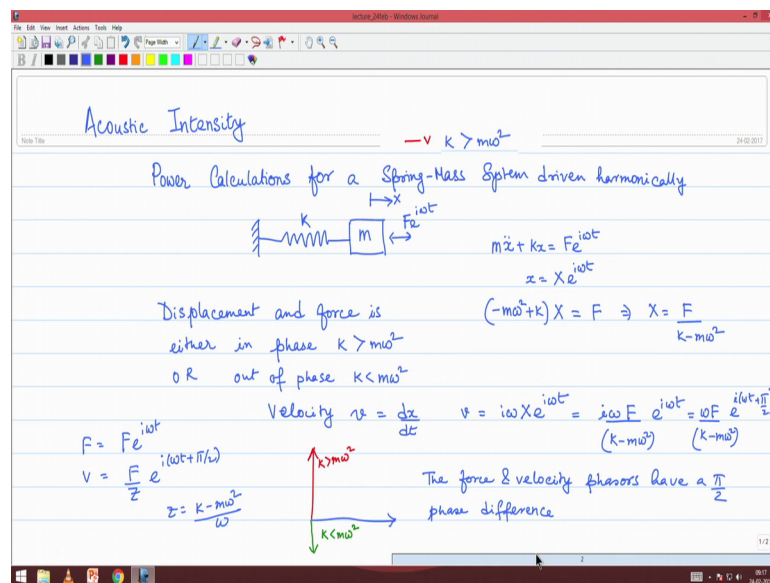 lecture_24feb - Windows Journal
File Edit View Insert Actions Tools Help
Page Width
B I
Note Title
24-02-2017
Acoustic Intensity
— v K > mω²
Power Calculations for a Spring-Mass System driven harmonically
x
K
m
Fe^{iωt}
mẍ + Kx = Fe^{iωt}
x = Xe^{iωt}
Displacement and force is
either in phase K > mω²
OR out of phase K < mω²
(-mω²+K) X = F ⇒ X = F/(K-mω²)
Velocity v = dx/dt v = iωXe^{iωt} = iωF/(K-mω²) e^{iωt} = ωF/(K-mω²) e^{i(ωt+π/2)}
F = Fe^{iωt}
V = F/z e^{i(ωt+π/2)}
z = (K-mω²)/ω
K>mω²
K<mω²
The force & velocity phasors have a π/2
phase difference
1/2
2
09:17
24-02-2017